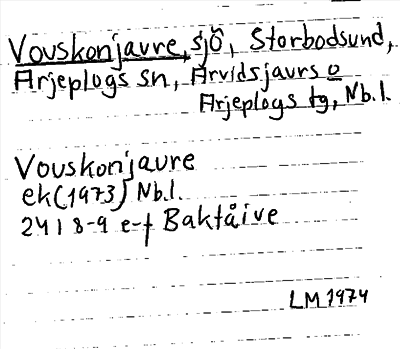 Vouskonjavre, sjö, Storbodsund,
Arjeplogs sn, Arvidsjaurs o
Arjeplogs tg, Nb.l.
Vouskonjaure
ek(1973) Nb.l.
24 I 8-9 e-f Baktåive
LM 1974